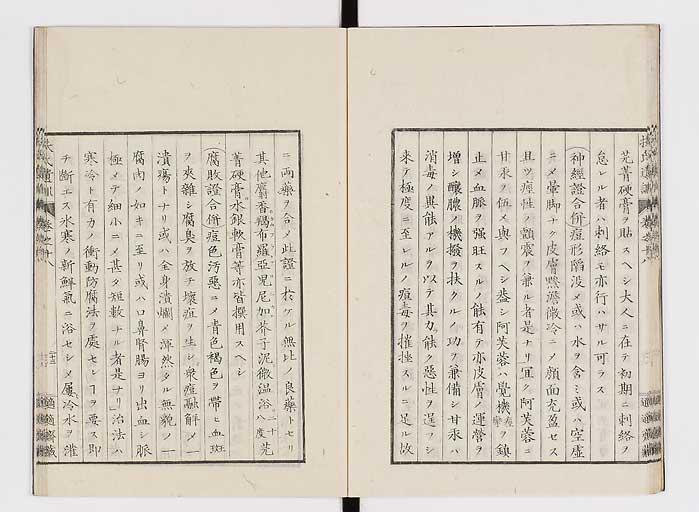 芫菁硬膏ヲ貼スヘシ大人ニ在テ初期ニ刺絡ヲ
怠レル者ハ刺絡モ亦行ハサル可ラス
(神經證合併)痘形陷没メ或ハ水ヲ含ミ或ハ空虚
ニメ暈脚ナク皮膚黯澹微冷ニメ顔面充盈セス
且ツ痙性ノ顫震ヲ兼ル者是ナリ宜ク阿芙蓉ニ
甘汞ヲ伍メ與フヘシ蓋シ阿芙蓉ハ覺機ヲ鎮
止メ血脈ヲ強旺スルノ能有テ亦皮膚ノ運營ヲ
増シ釀膿ノ機撥ヲ扶クルノ功ヲ兼備シ甘汞ハ
消毒ノ異能アルヲ以テ其力能ク惡性ヲ逞フシ
来テ極度ニ至レルノ痘毒ヲ摧挫スルニ足ル故
扶氏遺訓 巻之十八
適適齋藏
ニ両藥ヲ合メ此證ニ於ケル無比ノ良藥トセリ
其他麝香羯布羅亞尼加芥子泥微温浴八度 二十 芫
菁硬膏水銀軟膏等亦皆撰用スヘシ
(腐敗證合併)痘色汚惡ニメ青色褐色ヲ帶ヒ血斑
ヲ夾雜シ腐臭ヲ放チ壊疽ヲ生シ衆痘融解メ一
潰瘍トナリ或ハ全身潰爛メ渾然タル無貌ノ一
腐肉ノ如キニ至リ或ハ口鼻腎腸ヨリ出血シ脈
極メテ細小ニメ甚タ短數ナル者是ナリ治法ハ
寒冷ト有力ノ衝動防腐法ヲ處セレヿヲ要ス即
チ斷エス氷寒ノ新鮮氣ニ浴セシメ屢冷水ヲ灌
扶氏遺訓 巻之十八
適適齋藏